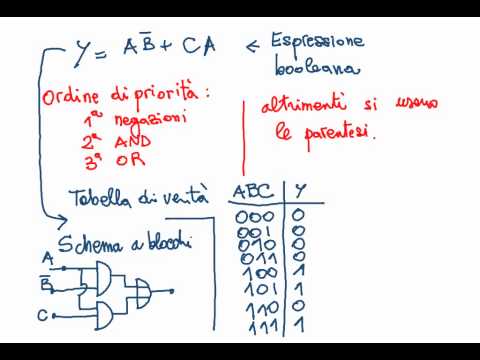 Y = AB̅ + CA ← Espressione
booleana
Ordine di priorità:
1ª negazioni
2ª AND
3ª OR
altrimenti si usano
le parentesi.
Tabella di verità
ABC Y
000 0
001 0
010 0
011 0
100 1
101 1
110 0
111 1
Schema a blocchi
A
B̅
C